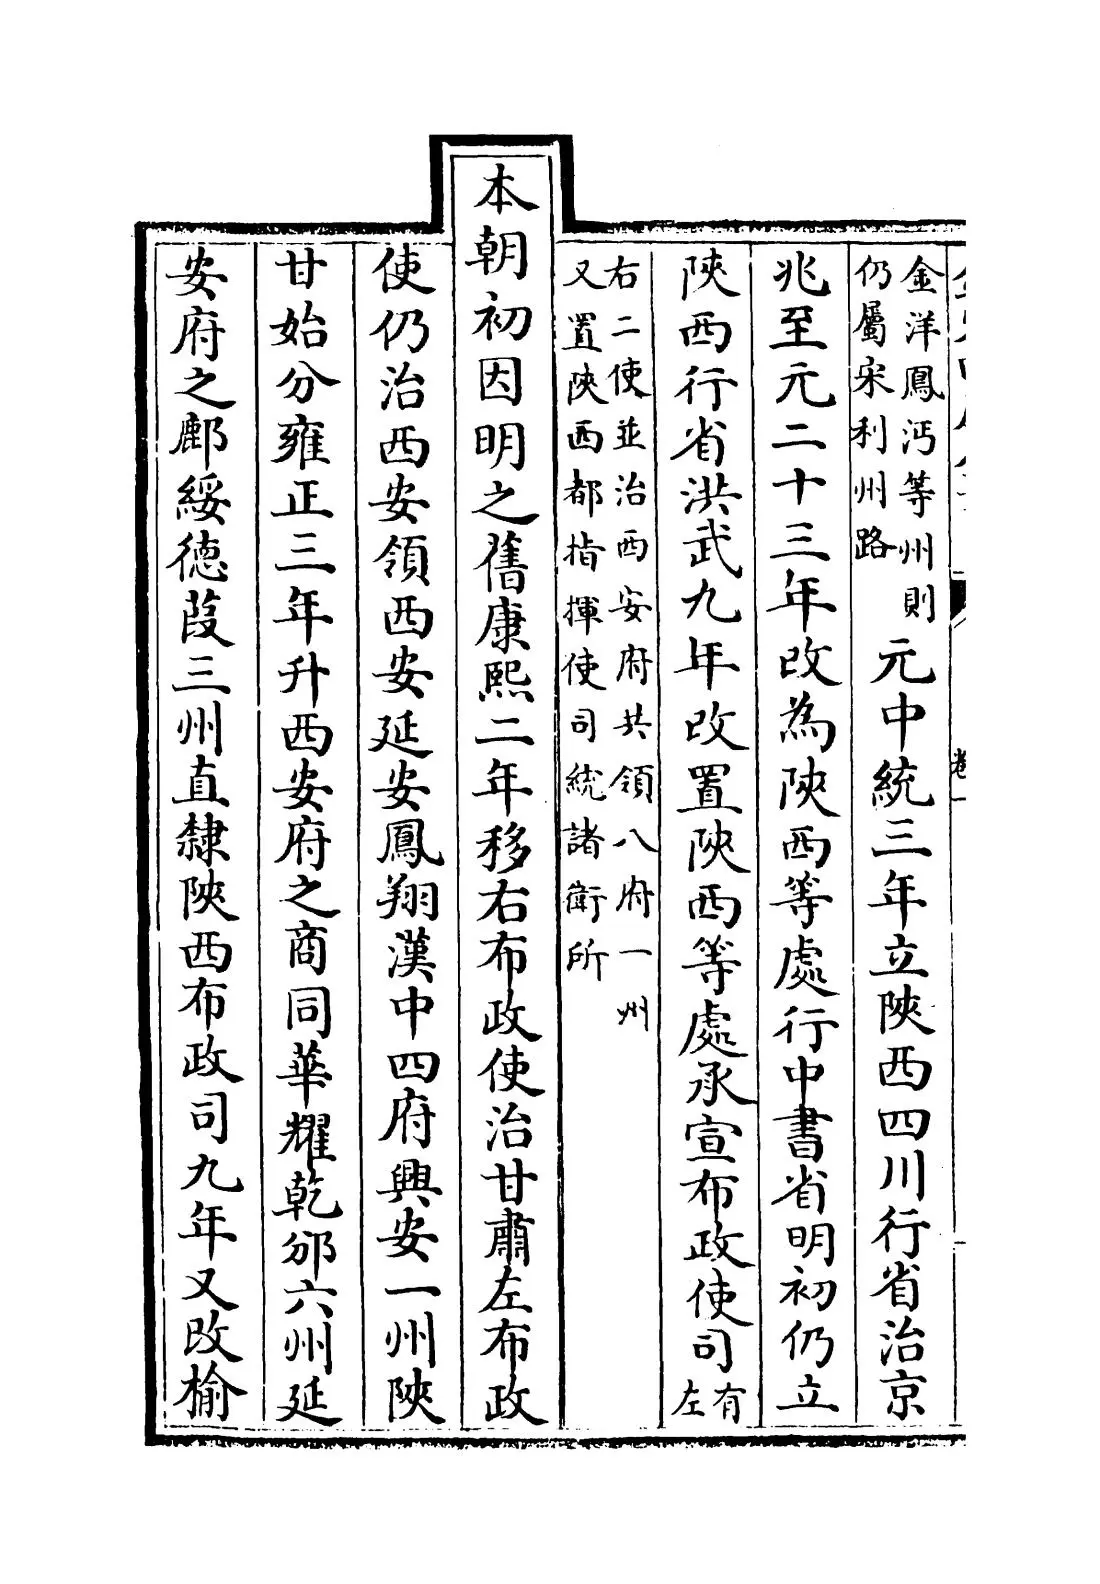 卷一
金洋鳳沔等州則
仍屬宋利州路
元中統三年立陜西四川行省治京
兆至元二十三年改為陜西等處行中書省明初仍立
陜西行省洪武九年改置陜西等處承宣布政使司
有
左
右二使並治西安府共領八府一州
又置陜西都指揮使司統諸衛所
本朝初因明之舊康熙二年移右布政使治甘肅左布政
使仍治西安領西安延安鳳翔漢中四府興安一州陜
甘始分雍正三年升西安府之商同華耀乾邠六州延
安府之鄜綏德葭三州直隸陜西布政司九年又改榆